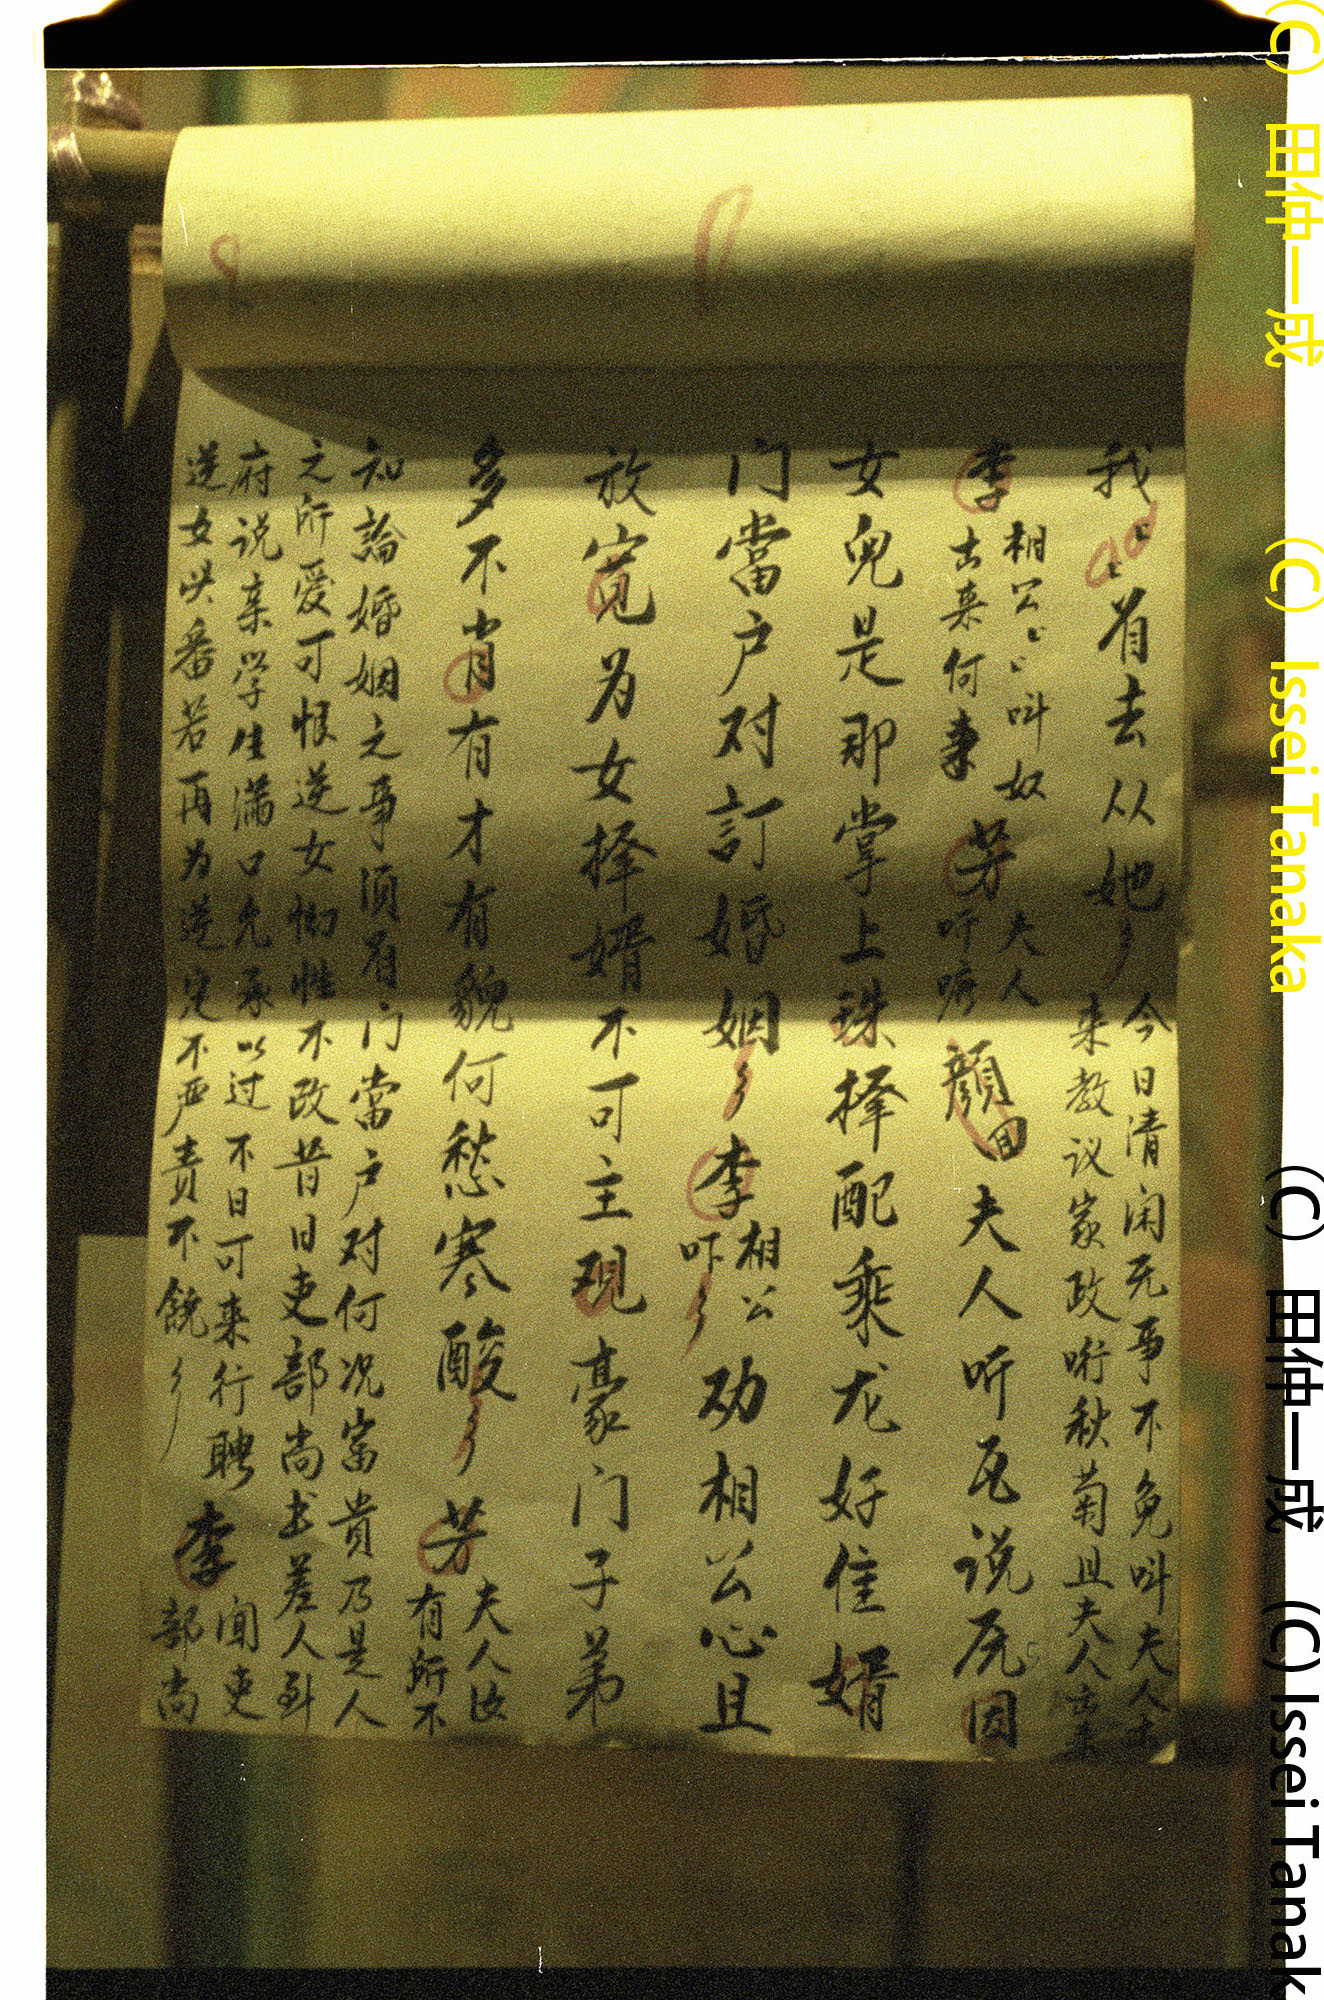 我〻〻有去从她 今日清闲无事不免叫夫人出
来教议家政哘秋菊且夫人出来
李 相公〻〻叫奴
出来何事 芳 夫人
吁嗏 顏回 夫人听瓦说原因
女兒是那掌上珠择配乘龙好佳婿
门當户对訂婚姻 李 相公
吓 劝相公心且
放寛为女择婿不可主观豪门子弟
多不肖有才有貌何愁寒酸 芳 夫人汝
有所不
知論婚姻之事须有门當户对何况富貴乃是人
之所爱可恨逆女㤘性不改昔日吏部尚书差人到
府说亲学生满口允承以过不日可来行聘 李 聞吏
部尚
逆女哄番若再为逆定不严责不饶
(C) 田仲一成 (C) Issei Tanaka
(C) 田仲一成 (C) Issei Tanak